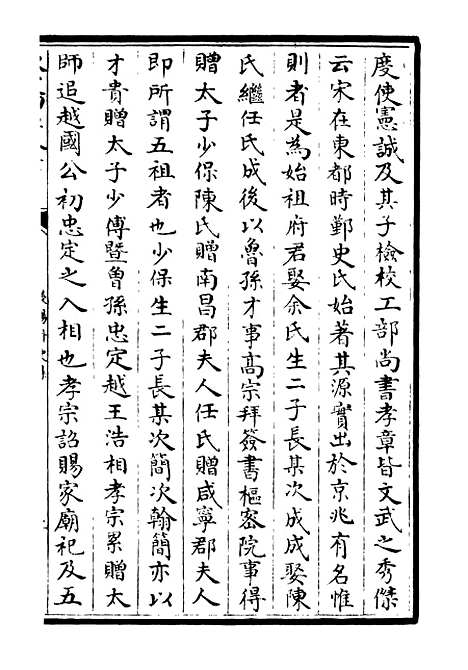 度使憲誠及其子檢校工部尚書孝章皆文武之秀傑
云宋在東都時鄞史氏始著其源實出於京兆有名惟
則者是為始祖府君娶余氏生二子長某次成成娶陳
氏繼任氏成後以魯孫才事高宗拜簽書樞密院事得
贈太子少保陳氏贈南昌郡夫人任氏贈咸寧郡夫人
即所謂五祖者也少保生二子長某次簡次翰簡亦以
才貴贈太子少傅暨曽孫忠定越王浩相孝宗累贈太
師追越國公初忠定之入相也孝宗詔賜家廟祀及五